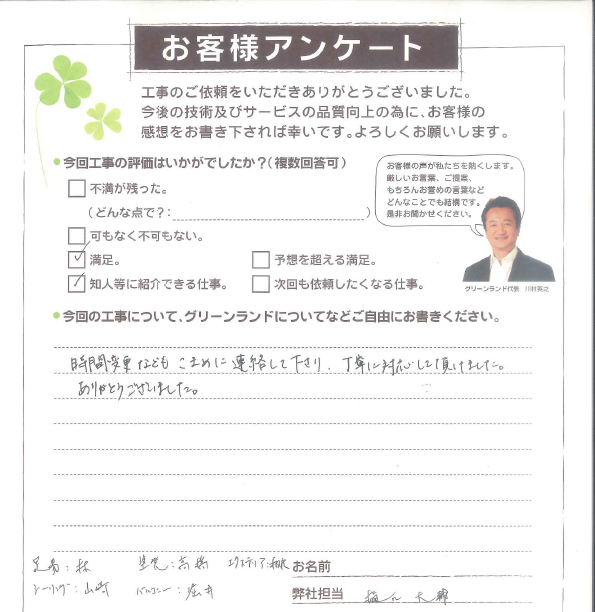 お客様アンケート
工事のご依頼をいただきありがとうございました。
今後の技術及びサービスの品質向上の為に、お客様の
感想をお書き下されば幸いです。よろしくお願いします。
今回工事の評価はいかがでしたか?(複数回答可)
不満が残った。
(どんな点で?: )
可もなく不可もない。
満足。
予想を超える満足。
知人等に紹介できる仕事。
次回も依頼したくなる仕事。
お客様の声が私たちを熱くします。
厳しいお言葉、ご提案、
もちろんお誉めの言葉など
どんなことでも結構です。
是非お聞かせください。
グリーンランド代表
今回の工事について、グリーンランドについてなどご自由にお書きください。
時間変更なども こまめに連絡して下さり、丁寧に対応して頂けました。
ありがとうございました。
足場:林
高橋
お名前
山崎
弊社担当